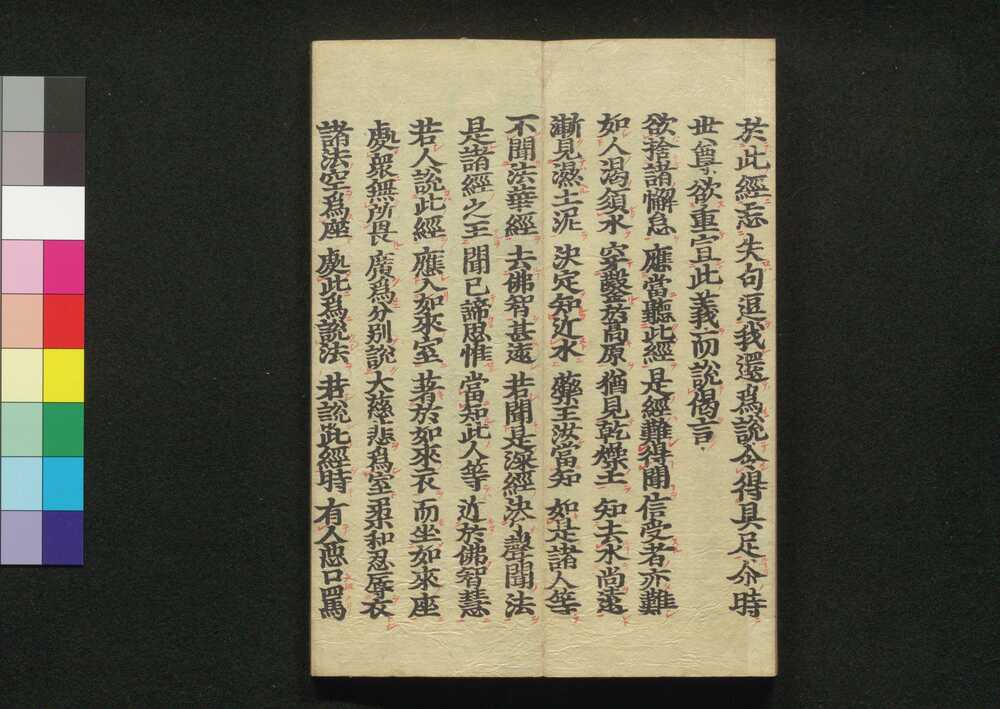 於此經忘失句逗我還爲說令得具足尒時
世尊欲重宣此義而說偈言
欲捨諸懈怠 應當聽此經 是經難得聞 信受者亦難
如人渴須水 穿鑿於高原 猶見乾燥土 知去水尚遠
漸見濕土泥 決定知近水 藥王汝當知 如是諸人等
不聞法華經 去佛智甚遠 若聞是深經 決了聲聞法
是諸經之王 聞已諦思惟 當知此人等 近於佛智慧
若人說此經 應入如來室 著於如來衣 而坐如來座
處衆無所畏 廣爲分別說 大慈悲爲室 柔和忍辱衣
諸法空爲座 處此爲說法 若說此經時 有人惡口罵